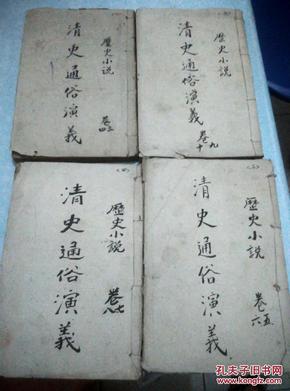 歷史小説
卷三四
清史通俗演義
歷史小説
卷九十
清史通俗演義
歷史小說
卷七八
清史通俗演義
(三)
歷史小說
卷五六
清史通俗演義
孔夫子旧书网